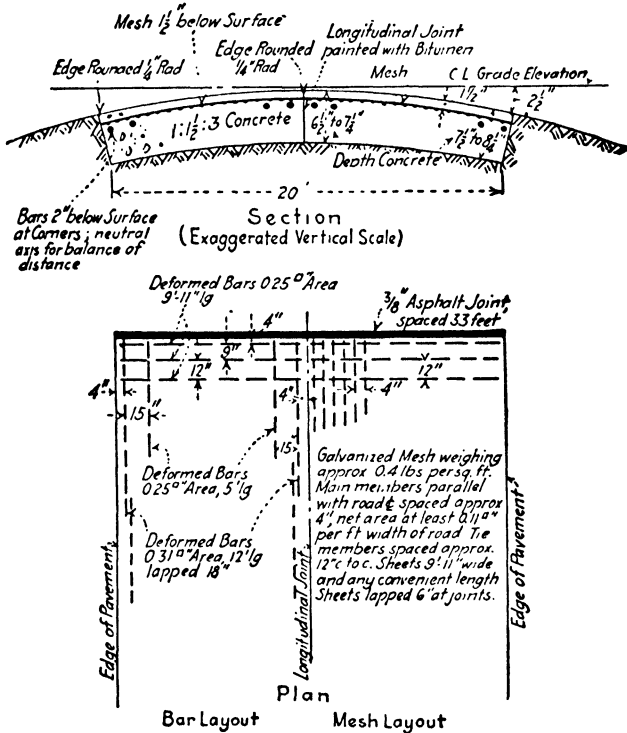 Mesh 1½" below Surface
Edge Rounded
¼" Rad
Longitudinal Joint
painted with Bitumen
Edge Rounded ¼" Rad
Mesh
C L Grade Elevation
1½"
2½"
1:1½:3 Concrete
6½" to 7¼"
7½" to 8¼"
Depth Concrete
20'
Bars 2" below Surface
at Corners; neutral
axis for balance of
distance
Section
(Exaggerated Vertical Scale)
Deformed Bars 0.25□" Area
9'-11" lg
4"
⅜" Asphalt Joint,
spaced 33 feet
9"
12"
12"
4"
4"
4"
15"
15"
Deformed Bars
0.25□" Area, 5' lg
Deformed Bars
0.31□" Area, 12' lg
lapped 18"
Galvanized Mesh weighing
approx 0.4 lbs per sq. ft.
Main members parallel
with road ℄ spaced approx
4", net area at least 0.11□"
per ft width of road Tie
members spaced approx.
12" c to c. Sheets 9'-11" wide
and any convenient length
Sheets lapped 6" at joints.
Edge of Pavement
Longitudinal Joint
Edge of Pavement
Plan
Bar Layout
Mesh Layout